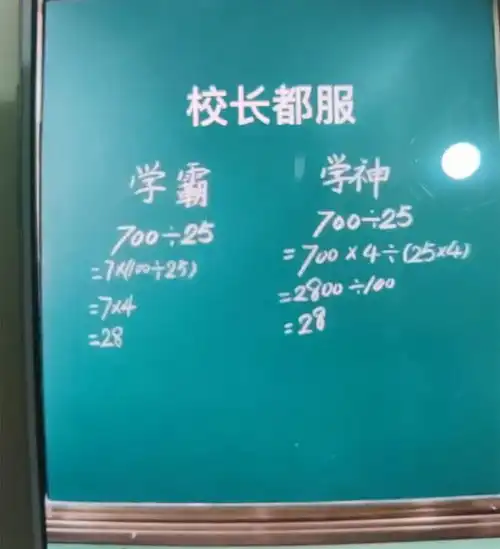 校长都服
学霸
700÷25
=7×(100÷25)
=7×4
=28
学神
700÷25
=700×4÷(25×4)
=2800÷100
=28